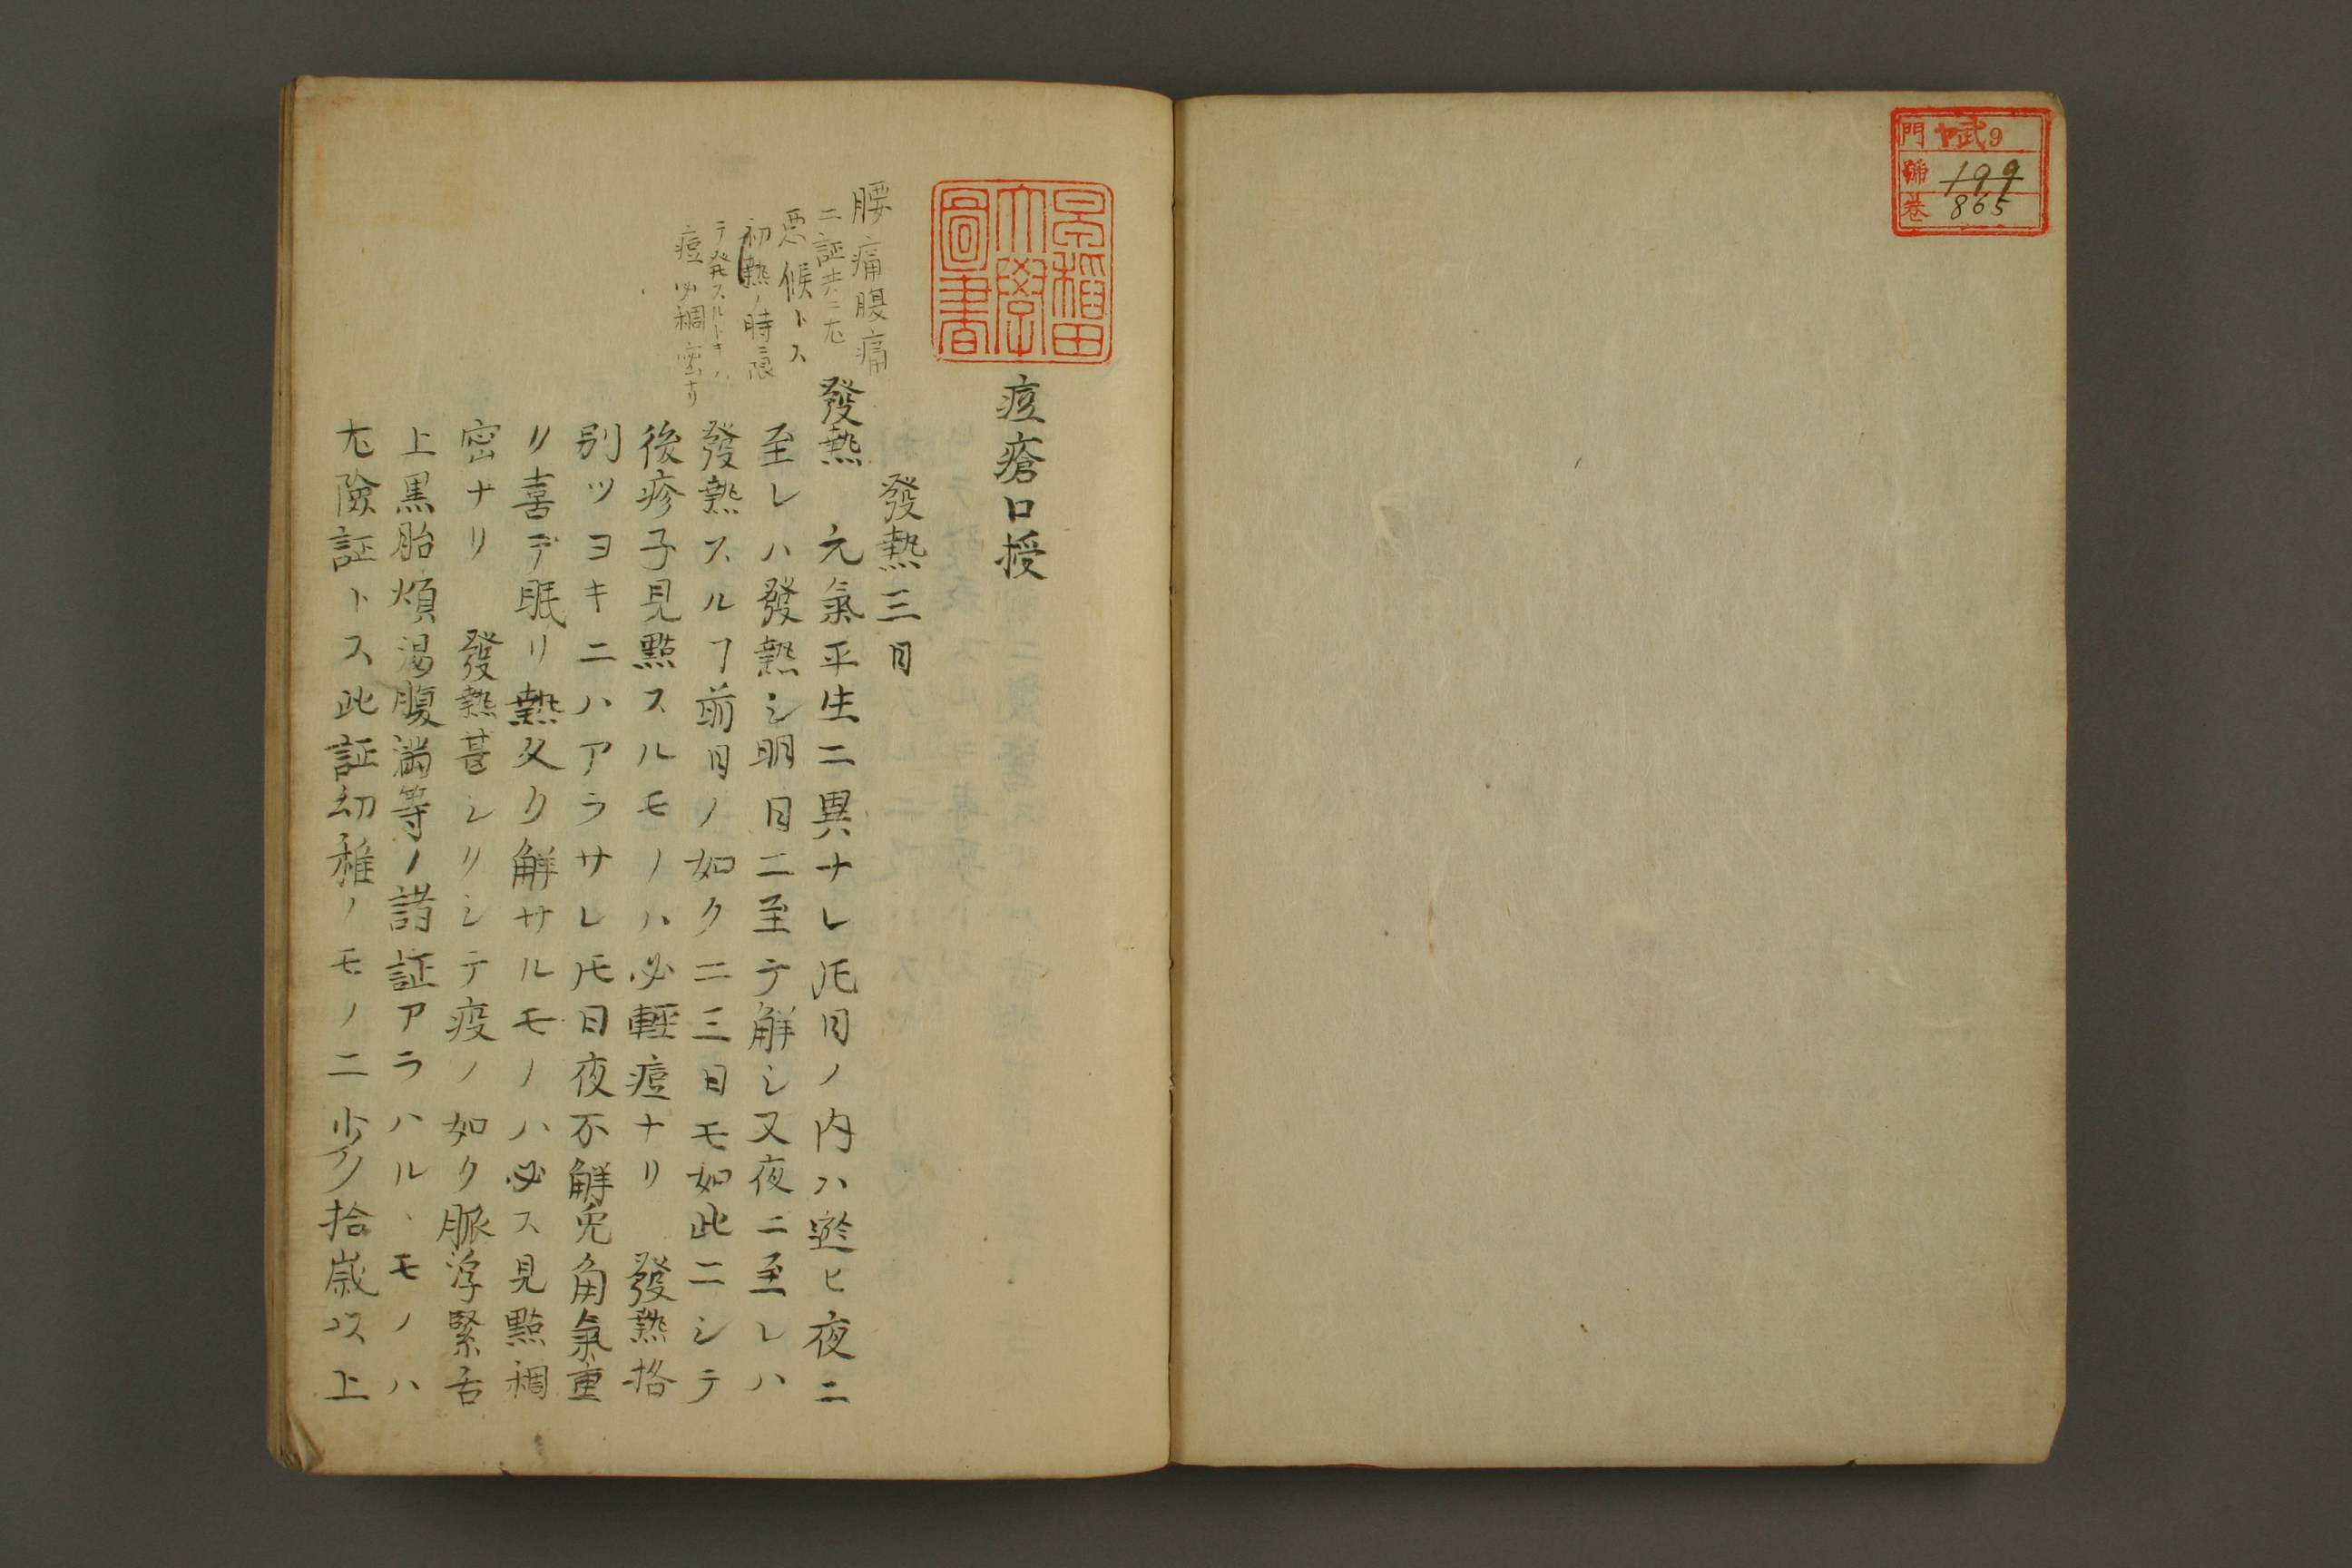 門 武9
號 199
巻 865
早稲田
大學
圖書
痘瘡口授
發熱三日
腰痛腹痛
二証共ニ尤
悪候トス
初熱ノ時限
テ発スルトキハ
痘必稠密ナリ
發熱 元氣平生ニ異ナレ𪜈日ノ内ハ遊ヒ夜ニ
至レハ發熱シ明日ニ至テ解シ又夜ニ至レハ
發熱スルヿ前日ノ如ク二三日モ如此ニシテ
後疹子見點スルモノハ必輕痘ナリ 發熱格
別ツヨキニハアラサレ𪜈日夜不解兎角氣重
リ喜デ眠リ熱久ク解サルモノハ必ス見點稠
密ナリ 發熱甚シリシテ疫ノ如ク脈浮緊舌
上黒胎煩渇腹満等ノ諸証アラハルヽモノハ
尤險証トス此証幼稚ノモノニ少ク拾歳以上